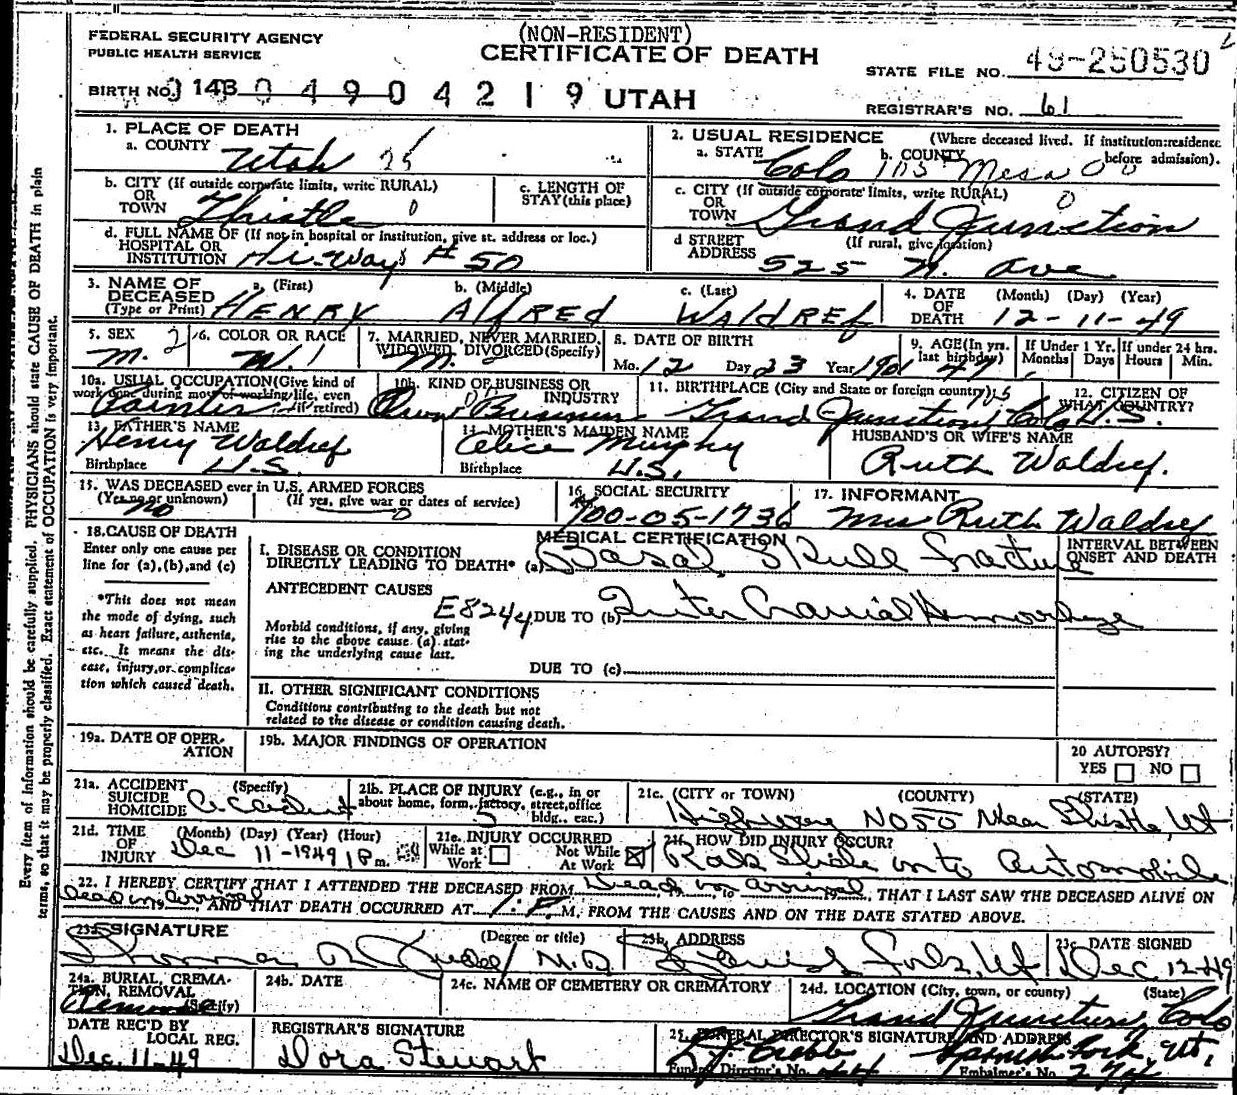 (NON-RESIDENT)
FEDERAL SECURITY AGENCY
PUBLIC HEALTH SERVICE
CERTIFICATE OF DEATH
STATE FILE NO. 49-250530
BIRTH NO. 143 0 4 9 0 4 2 1 9 UTAH
REGISTRAR'S NO. 61
1. PLACE OF DEATH
a. COUNTY Utah 25
2. USUAL RESIDENCE (Where deceased lived. If institution: residence before admission).
a. STATE Colo 105 b. COUNTY Mesa 00
b. CITY (If outside corporate limits, write RURAL) OR TOWN Thistle 0
c. LENGTH OF STAY (this place)
c. CITY (If outside corporate limits, write RURAL) OR TOWN Grand Junction 0
d. FULL NAME OF (If not in hospital or institution, give st. address or loc.) HOSPITAL OR INSTITUTION Hi-Way # 50
d STREET ADDRESS (If rural, give location) 525 N. Ave
3. NAME OF DECEASED (Type or Print)
a. (First) HENRY b. (Middle) Alfred c. (Last) Waldref
4. DATE OF DEATH (Month) (Day) (Year) 12-11-49
5. SEX M. 2
6. COLOR OR RACE W. 1
7. MARRIED, NEVER MARRIED, WIDOWED, DIVORCED (Specify) M.
8. DATE OF BIRTH Mo. 12 Day 23 Year 1901
9. AGE (In yrs. last birthday) 47
If Under 1 Yr. Months Days
If under 24 hrs. Hours Min.
10a. USUAL OCCUPATION (Give kind of work done during most of working life, even if retired) Painter
10b. KIND OF BUSINESS OR INDUSTRY Own Business
11. BIRTHPLACE (City and State or foreign country) 105 Grand Junction, Colo
12. CITIZEN OF WHAT COUNTRY? U.S.
13 FATHER'S NAME Henry Waldref
Birthplace U.S.
14 MOTHER'S MAIDEN NAME Alice Murphy
Birthplace U.S.
HUSBAND'S OR WIFE'S NAME Ruth Waldref.
15. WAS DECEASED ever in U.S. ARMED FORCES
(Yes no or unknown) No
(If yes, give war or dates of service) 0
16 SOCIAL SECURITY No. 700-05-1736
17. INFORMANT Mrs Ruth Waldref
MEDICAL CERTIFICATION
18. CAUSE OF DEATH
Enter only one cause per line for (a), (b), and (c)
*This does not mean the mode of dying, such as heart failure, asthenia, etc. It means the disease, injury, or complication which caused death.
I. DISEASE OR CONDITION DIRECTLY LEADING TO DEATH* (a) Basal Skull fracture
INTERVAL BETWEEN ONSET AND DEATH
ANTECEDENT CAUSES
E8244 DUE TO (b) Inter Cranial Hemorrhage
Morbid conditions, if any, giving rise to the above cause (a) stating the underlying cause last.
DUE TO (c)
II. OTHER SIGNIFICANT CONDITIONS
Conditions contributing to the death but not related to the disease or condition causing death.
19a. DATE OF OPERATION
19b. MAJOR FINDINGS OF OPERATION
20 AUTOPSY?
YES NO
21a. ACCIDENT SUICIDE HOMICIDE (Specify) Accident
21b. PLACE OF INJURY (e.g., in or about home, form, factory, street, office bldg., etc.) 5
21c. (CITY OR TOWN) (COUNTY) (STATE)
Highway No 50 Near Thistle, Ut
21d. TIME OF INJURY (Month) (Day) (Year) (Hour) Dec 11-1949 1 P m.
21e. INJURY OCCURRED
While at Work Not While At Work
21f. HOW DID INJURY OCCUR? Rock Slide onto Automobile
22. I HEREBY CERTIFY THAT I ATTENDED THE DECEASED FROM Dead on 19 , TO arrival 19 , THAT I LAST SAW THE DECEASED ALIVE ON Dead on arrival, AND THAT DEATH OCCURRED AT 1. P. M, FROM THE CAUSES AND ON THE DATE STATED ABOVE.
23a. SIGNATURE (Degree or title) M.D.
23b. ADDRESS Spanish Fork, Ut
23c DATE SIGNED Dec 12-49
24a. BURIAL, CREMATION, REMOVAL (Specify) Removal
24b. DATE
24c. NAME OF CEMETERY OR CREMATORY
24d. LOCATION (City, town, or county) (State) Grand Junction, Colo
DATE REC'D BY LOCAL REG. Dec. 11-49
REGISTRAR'S SIGNATURE Dora Stewart
25. FUNERAL DIRECTOR'S SIGNATURE AND ADDRESS Spanish Fork, Ut.
Funeral Director's No. 44 Embalmer's No. 274
Every item of Information should be carefully supplied. PHYSICIANS should state CAUSE OF DEATH in plain
terms, so that it may be properly classified. Exact statement of OCCUPATION is very important.